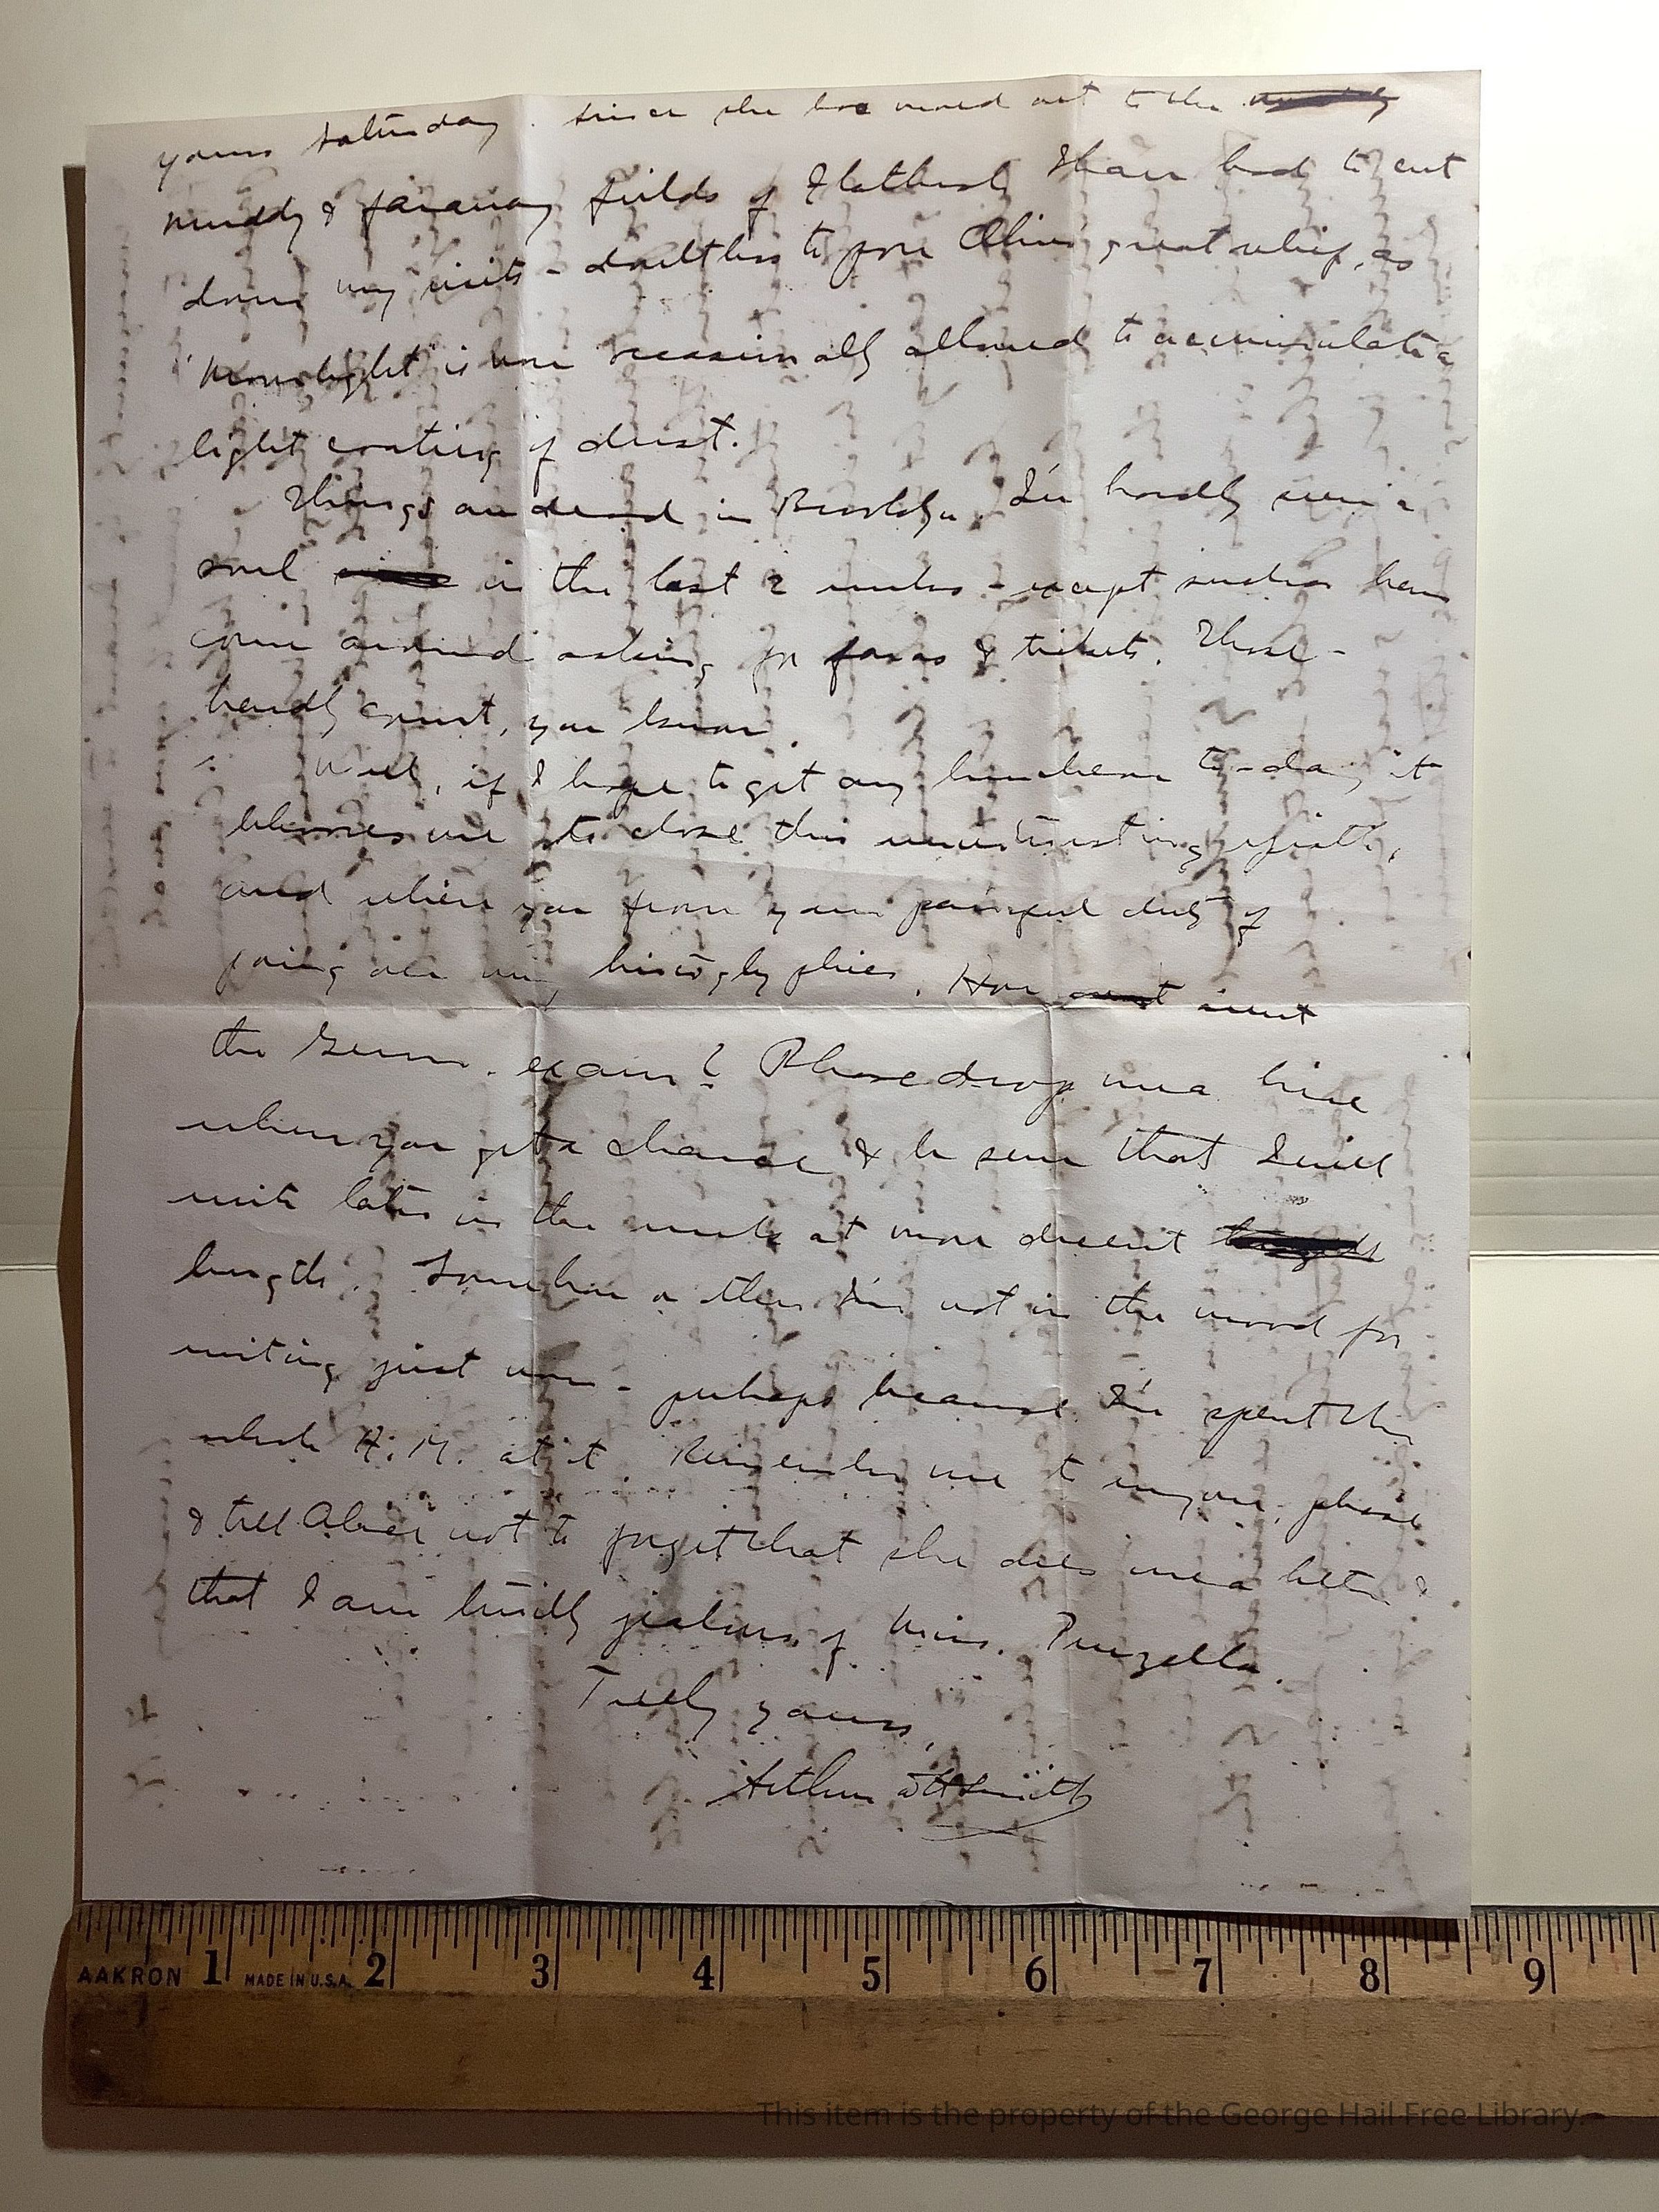 yours Saturday. Since she has moved out to the
muddy & faraway fields of Flatbush I have had to cut
down my visits - doubtless to poor Olive's great relief, as
"Moonlight" is now occasionally allowed to accumulate a
light coating of dust.
Things are dead in Brooklyn. I've hardly seen a
soul in the last 2 weeks - except such as have
come around asking for favors & tickets. Those -
hardly count, you know.
Well, if I hope to get any luncheon to-day it
behooves me to close this uninteresting epistle,
and relieve you from your painful duty of
going over my hieroglyphics. How went
the Germ. exam? Please drop me a line
when you get a chance & be sure that I will
write later in the week at more decent
length. Somehow or other I'm not in the mood for
writing just now - perhaps because I've spent the
whole A.M. at it. Remember me to everyone, please
& tell Alice not to forget that she owes me a letter &
that I am terribly jealous of Miss.
Truly yours,
Arthur Smith
AAKRON 1 MADE IN U.S.A. 2 3 4 5 6 7 8 9
This item is the property of the George Hail Free Library.